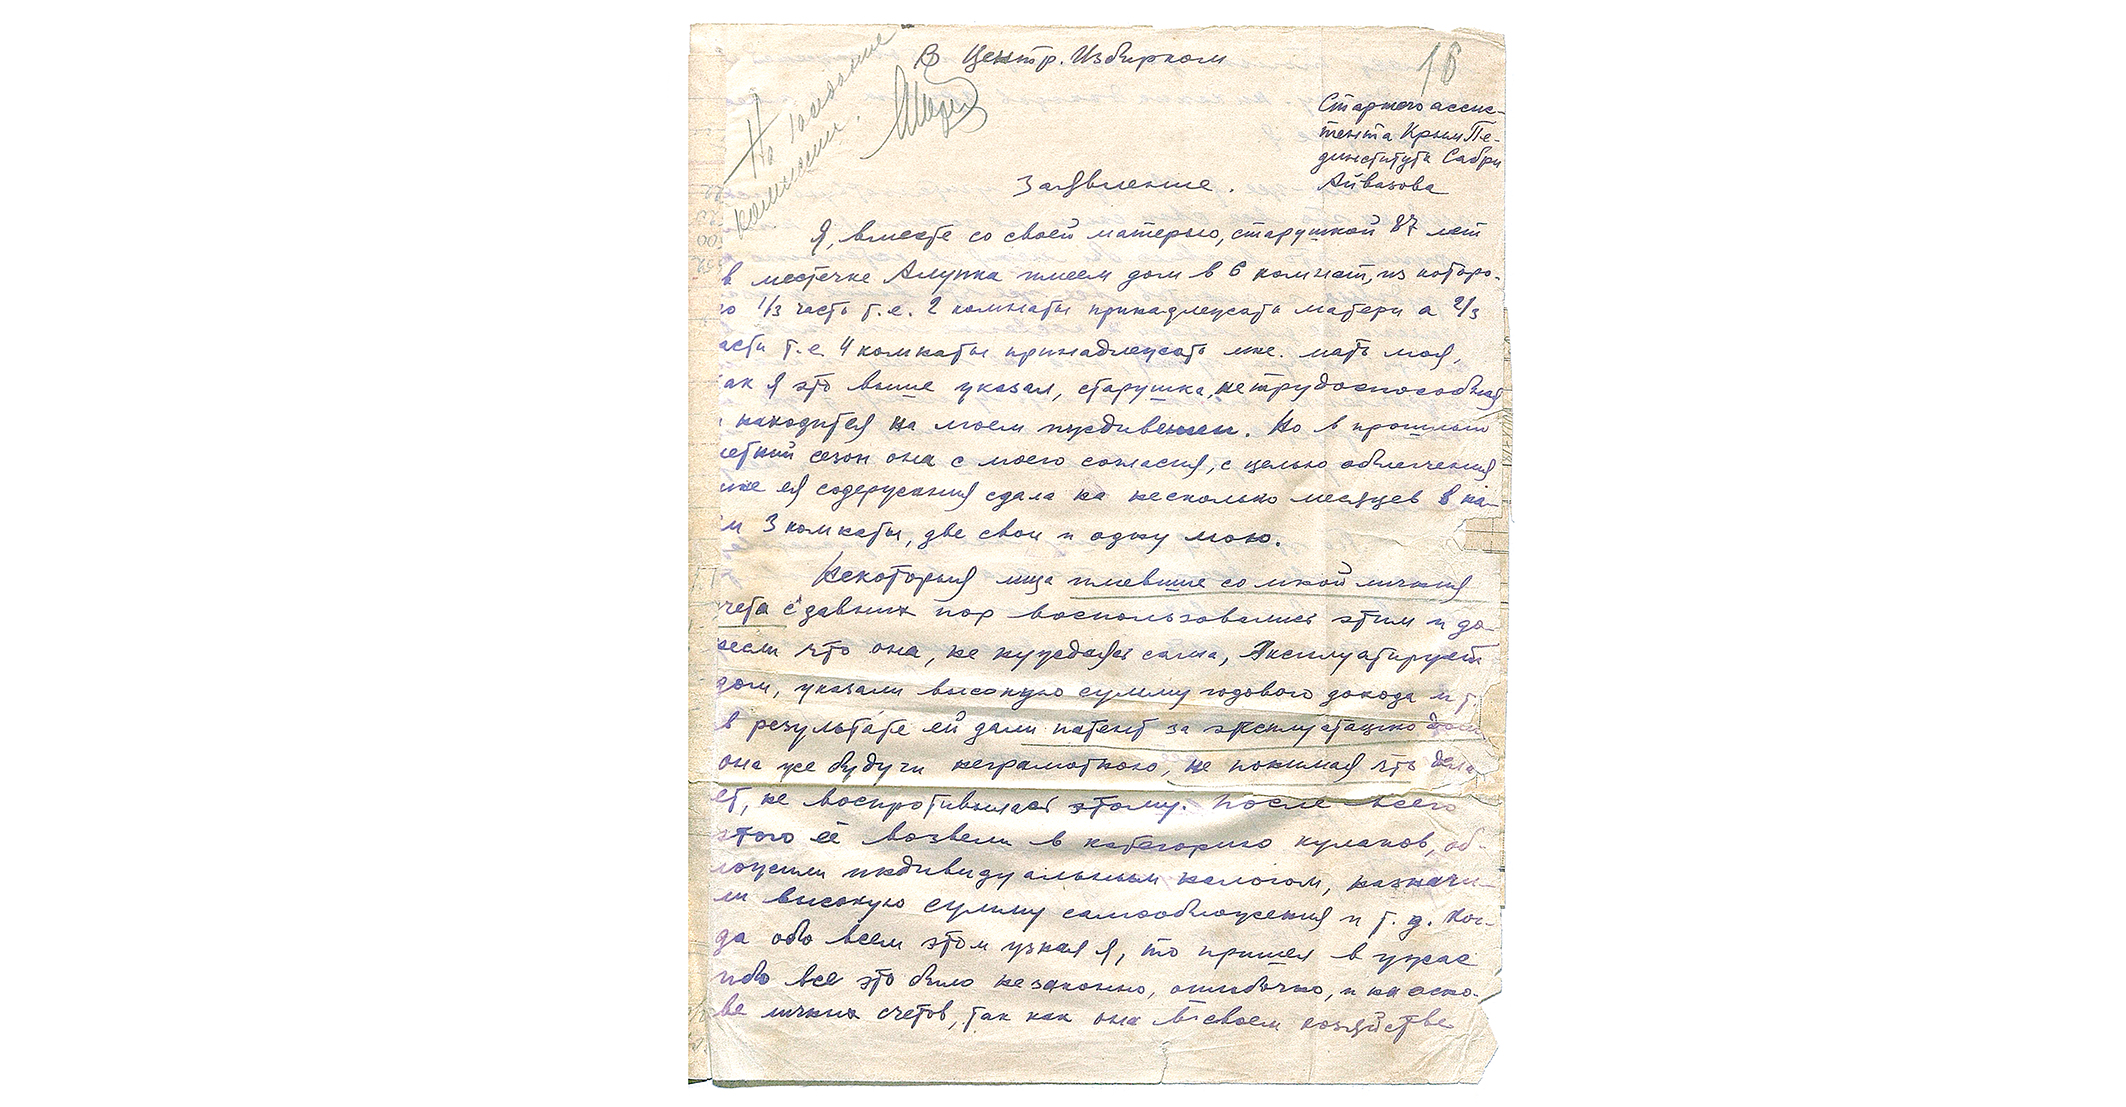 В Центр. Избирком
16
На заседание
комиссии.
Старшего ассис-
тента Крым Пе-
динститута Сабри
Айвазова
Заявление.
Я, вместе со своей матерью, старушкой 87 лет
в местечке Алупка имеем дом в 6 комнат, из которо-
го 1/3 часть т.е. 2 комнаты принадлежать матери а 2/3
асти т.е 4 комнаты принадлежать мне. мать моя,
ак я это выше указал, старушка, нетрудоспособная
находится на моем иждивении. Но в прошлый
етний сезон она с моего согласия, с целью облегчения
мне ея содержания сдала на несколько месяцев в на-
м 3 комнаты, две свои и одну мою.
Некоторыя лица имевшие со мной личныя
чета с давних пор воспользовались этим и до-
несли что она, не нуждаясь сама, эксплуатирует
дом, указали высокую сумму годового дохода и т.
в результате ей дали патент за эксплуатацию дом
она же будучи неграмотною, не понимая что дела
ет, не воспротивилась этому. После всего
этого её возвели в категорию кулаков, об-
ложили индивидуальным налогом, назначи-
ли высокую сумму самообложения и т. д. Ког-
да обо всем этом узнал я, то пришел в ужас
ибо все это было незаконно, ошибочно, и на осно-
ве личных счетов, так как она в своем хозяйстве